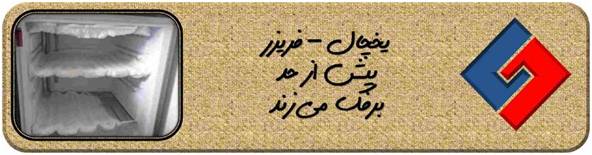 یخچال - فریزر
پیش از حد
برفک می زند